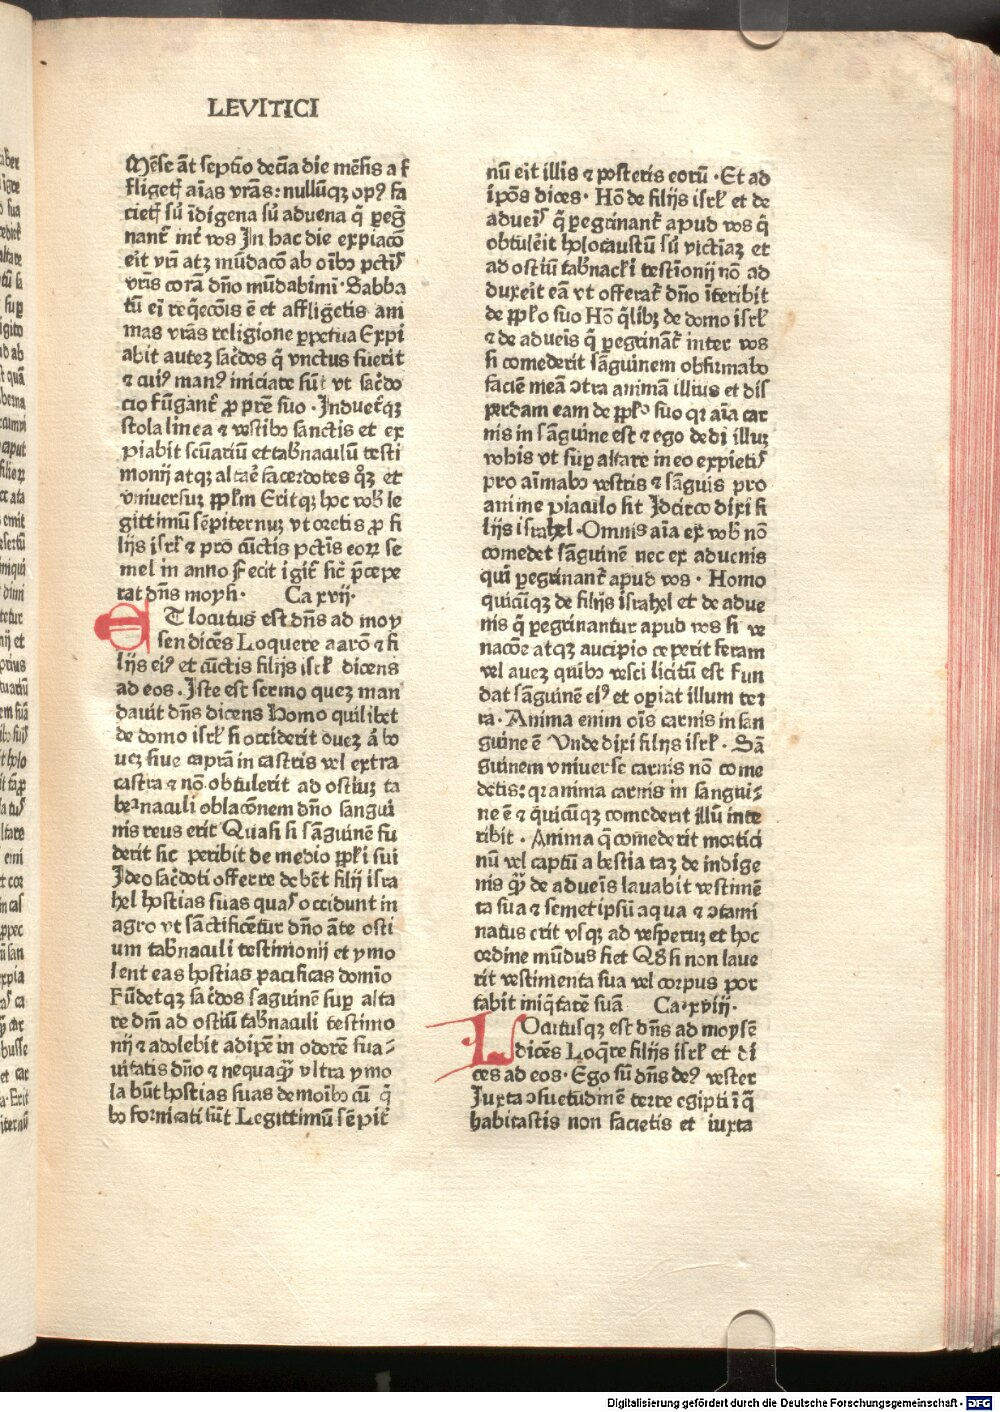 LEVITICI
Mēse āt septīo decīa die mēsis a f
fligetꝭ aīas vrās: nullūqꝫ opꝰ fa
cietꝭ sū īdigena sū aduena q̄ ꝑegr̄
nant̄ int̄ vos In hac die expiacō
eit vr̄i atꝫ mūdacō ab oībꝰ pctīs
vr̄is corā dn̄o mūdabimī· Sabba
tū eī reqecōis ē et affligētis ani
mas vrās religione ꝑpetua Expi
abit autez sac̄dos q̄ vnctus fuerit
⁊ cuiꝰ manꝰ iniciate sūt vt sac̄do
cio fūgant̄ ꝓ pr̄e suo · Induet̄qꝫ
stola linea ⁊ vestibꝰ sanctis et ex
piabit scūariū et tab̄naculū testi
monij atqꝫ altaē sacerdotes q̊ꝫ et
vniuersuꝫ ppl̄m Erit qꝫ hoc vob̄ le
gittimū sēpiternuꝫ vt oretis ꝓ fi
lijs isrl̄ ⁊ pro cūctis pctīs eoꝝ se
mel in anno Fecit igit̄ sic̄ p̄cepe
rat dn̄s moysi· Ca xvij·
ET locutus est dn̄s ad moy
sen dicēs Loquere aarō ⁊ fi
lijs eiꝰ et cūctis filijs isrl̄ dicens
ad eos · Iste est sermo quez man
dauit dn̄s dicens Homo quilibet
de domo isrl̄ si occiderit ouez ā bo
uez siue caprā in castris vel extra
castra ⁊ nō obtulerit ad ostiuꝫ ta
bernaculi oblacōnem dn̄o sangui
nis reus erit Quasi si sāguinē fu
derit sic peribit de medio ppl̄i sui
Ideo sac̄doti offerre debēt filij isra
hel hostias suas quas occidunt in
agro vt sāctificētur dn̄o āte osti
um tab̄naculi testimonij et ymo
lent eas hostias pacificas domīo
Fūdetqꝫ sac̄dos sāguinē suꝑ alta
re dn̄i ad ostiū tab̄naculi testimo
nij ⁊ adolebit adipē in odorē sua⸗
uitatis dn̄o ⁊ nequaqꝫ vltra ymo
labūt hostias suas demoībꝰ cū q̄
bꝰ fornicati sūt Legittimū sēpit̄
nū eit illis ⁊ posteris eorū · Et ad
īpōs dices · Hō de filijs isrl̄ et de
adueīs q̄ ꝑegrinant̄ apud vos q̄
obtulēit holocaustū sū victīaꝫ et
ad ostiū tab̄nacl̄i testīonij nō ad
duxeit eā vt offerat̄ dn̄o īteribit
de ppl̄o suo Hō q̄libꝫ de domo isrl̄
⁊ de adueīs q̄ ꝑegrinant̄ inter vos
si comederit sāguinem obfirmabo
faciē meā ↄtra animā illius et dis
perdam eam de ppl̄o suo qꝛ aīa car
nis in sāguine est ⁊ ego dedi illuꝫ
vobis vt suꝑ altare in eo expietis
pro aīmabꝰ vestris ⁊ sāguis pro
anime piaculo sit Idcirco dixi fi
lijs israhel · Omnis aīa ex vob̄ nō
comedet sāguinē nec ex aduenis
qui ꝑegrinant̄ apud vos · Homo
quicūqꝫ de filijs israhel et de adue
nis q̄ ꝑegrinantur apud vos si ve
nacōe atqꝫ aucipio ceperit feram
vel auez quibꝰ vesci licitū est Fun
dat sāguinē eiꝰ et opiat illum ter
ra · Anima enim oīs carnis in san
guine ē Vnde dixi filijs isrl̄ · Sā
guinem vniuerse carnis nō come
detis: qꝛ anima carnis in sangui⸗
ne ē ⁊ q̄uicūqꝫ comederit illū inte
ribit · Anima q̄ comederit mortici
nū vel captū a bestia taꝫ de indige
nis qꝫ de adueīs lauabit vestimē
ta sua ⁊ semetipsū aqua ⁊ ↄtami
natus erit vsqꝫ ad vesperuꝫ et hoc
ordine mūdus fiet Qđ si non laue
rit vestimenta sua vel corpus por
tabit iniq̄tatē suā Ca·xviij·
LOcutusqꝫ est dn̄s ad moysē
dicēs Loq̄re filijs isrl̄ et di
ces ad eos· Ego sū dn̄s deꝰ vester
Iuxta ↄsuetudinē terre egipti ī q̄
habitastis non facietis et iuxta
Digitalisierung gefördert durch die Deutsche Forschungsgemeinschaft · DFG